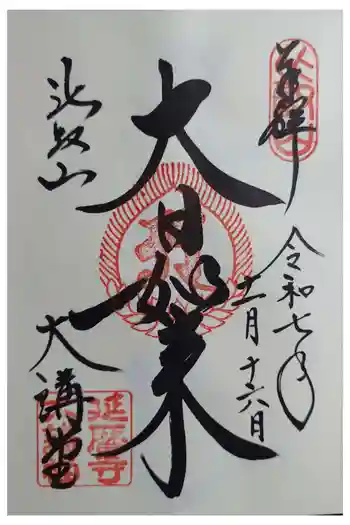 奉拝
令和七年
十一月十六日
大日如来
比叡山
大講堂
延暦寺